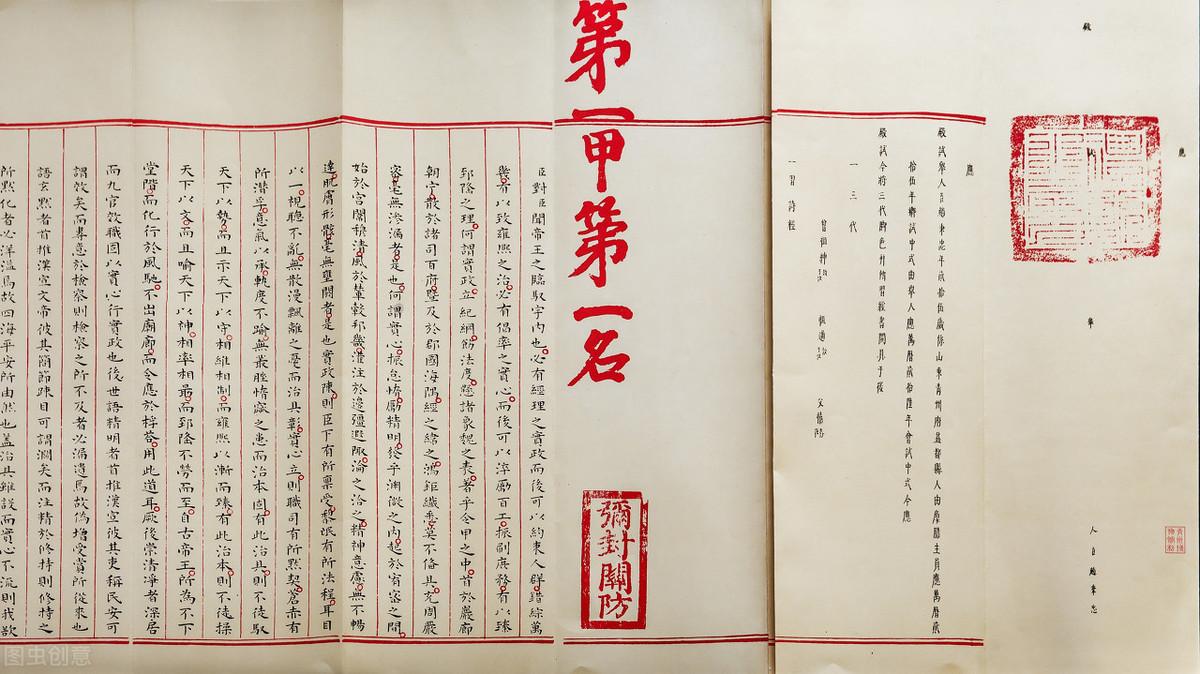 應
殿
舉
人臣趙秉忠
應
殿試舉人臣趙秉忠年貳拾伍歲係山東青州府益都縣人由廩膳生員應萬曆貳
拾伍年鄉試中式由舉人應萬曆貳拾陸年會試中式今應
殿試今將三代脚色并所習經書開具于後
一三代
曾祖 祖 父僖
一習詩經
第一甲第一名
彌封關防
臣對臣聞帝王之臨馭宇內也必有經理之實政而後可以約束人群錯綜萬
幾有以致雍熙之治必有倡率之實心而後可以淬勵百工振刷庶務有以臻
郅隆之理何謂實政立紀綱飭法度懸諸象魏之表著乎令甲之中首於巖廊
朝宁散於諸司百府暨及於郡國海隅經之緯之鴻鉅纖悉莫不備具充周嚴
密毫無滲漏者是也何謂實心振怠惰勵精明發乎淵微之內起於宥密之間
始於宮闈穆清風於輦轂邦畿灌注於邊疆遐陬淪之洽之精神意慮無不暢
達肌膚形骸毫無壅閼者是也實政陳則臣下有所禀受黎氓有所法程耳目
以一視聽不亂無散漫飄離之憂而治具彰實心立則職司有所默契蒼赤有
所潛孚意氣以承軌度不踰無叢脞惰窳之患而治本固有此治具則不徒馭
天下以勢而且示天下以守相維相制而雍熙以漸而臻有此治本則不徒操
天下以文而且喻天下以神相率相最而郅隆不勞而至自古帝王所為不下
堂階而化行於風馳不出廟廊而令應於桴答用此道耳厥後崇清淨者深居
而九官效職固以實心行實政也後世語精明者首推漢宣彼其吏稱民安可
謂效矣而專意於檢察則檢察之所不及者必漏遺焉故偽增受賞所從來也
語玄默者首推漢宣文帝彼其簡節疎目可謂濶矣而注精於修持則修持之
所默化者必洋溢焉故四海平安所由然也蓋治具雖設而實心不流則我欲
图虫创意